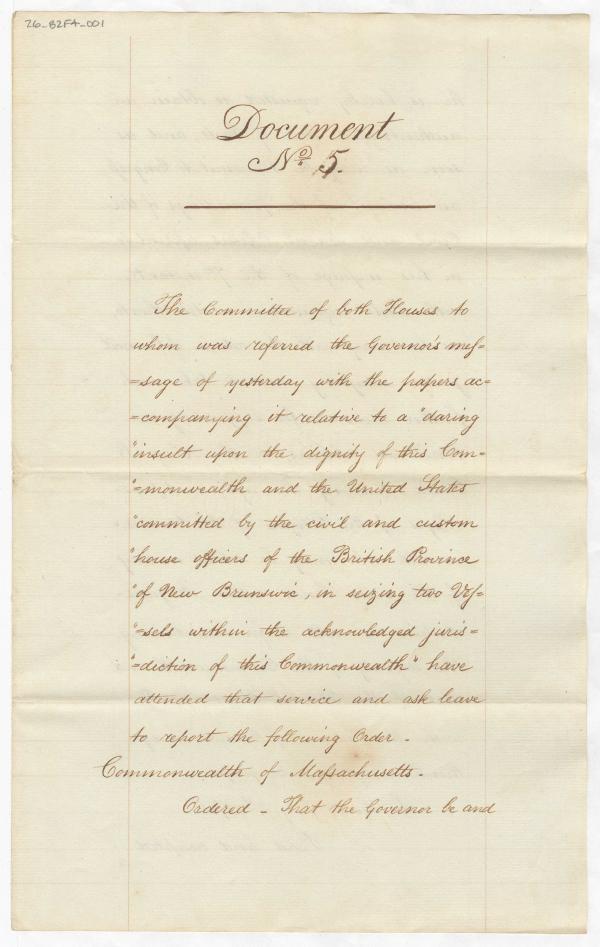 26-B2F4-001
Document
No. 5.
The Committee of both Houses to
whom was referred the Governor's mes=
=sage of yesterday with the papers ac=
=companying it relative to a "daring
"insult upon the dignity of this Com=
"=monwealth and the United States
"committed by the civil and custom
"house officers of the British Province
"of New Brunswic, in seizing two Ves=
"=sels within the acknowledged juris=
"=diction of this Commonwealth" have
attended that service and ask leave
to report the following Order -
Commonwealth of Massachusetts.
Ordered - That the Governor be and